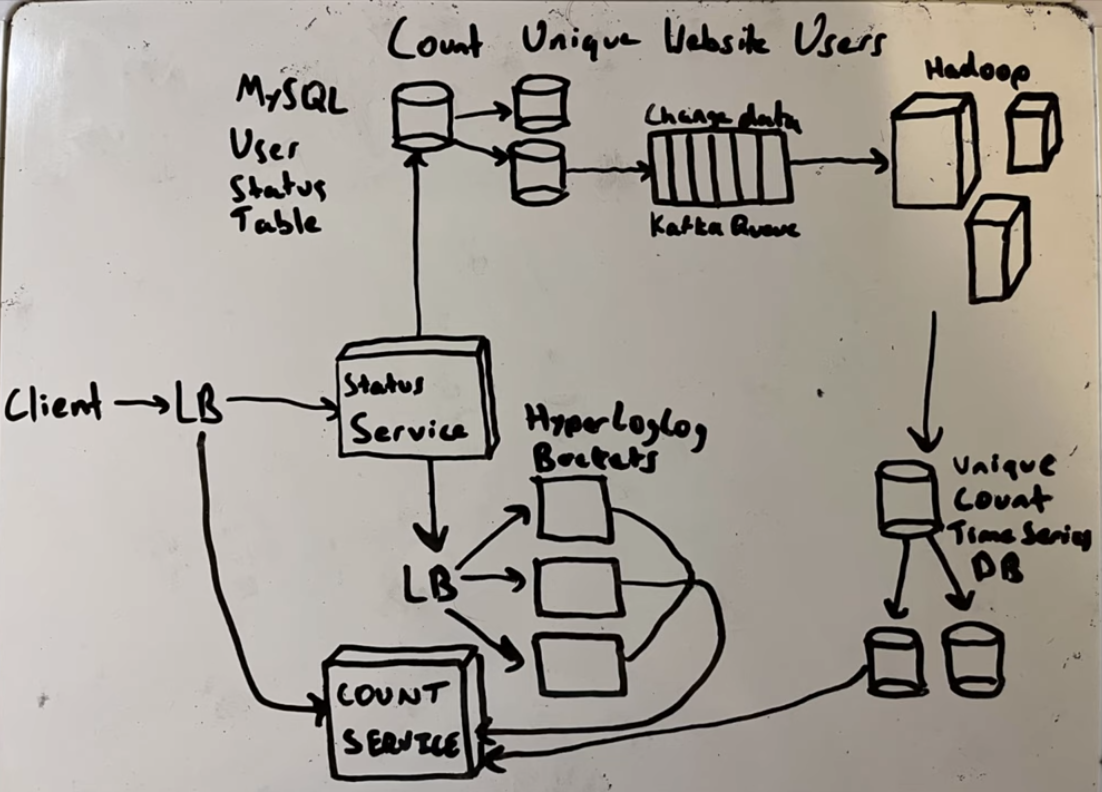 Count Unique Website Users
MySQL
User
Status
Table
Change data
Kafka Queue
Hadoop
Client
LB
Status
Service
HyperLogLog
Buckets
LB
COUNT
SERVICE
Unique
Count
Time Series
DB